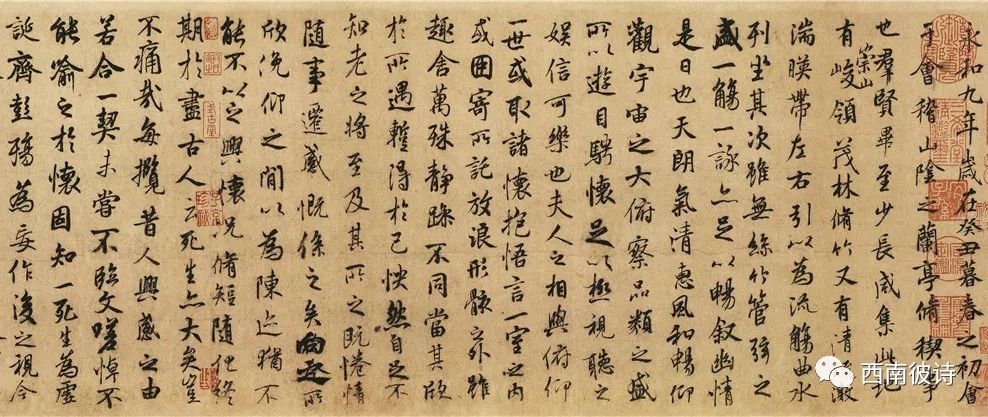 永和九年歲在癸丑暮春之初會
于會稽山陰之蘭亭脩禊事
也羣賢畢至少長咸集此地
有崇山峻領茂林脩竹又有清流激
湍暎帶左右引以為流觴曲水
列坐其次雖無絲竹管弦之
盛一觴一詠亦足以暢叙幽情
是日也天朗氣清惠風和暢仰
觀宇宙之大俯察品類之盛
所以遊目騁懷足以極視聽之
娛信可樂也夫人之相與俯仰
一世或取諸懷抱悟言一室之內
或因寄所託放浪形骸之外雖
趣舍萬殊靜躁不同當其欣
於所遇蹔得於己怏然自足不
知老之將至及其所之既惓情
隨事遷感慨係之矣向之所
欣俛仰之閒以為陳迹猶不
能不以之興懷況脩短隨化終
期於盡古人云死生亦大矣豈
不痛哉每攬昔人興感之由
若合一契未嘗不臨文嗟悼不
能喻之於懷固知一死生為虛
誕齊彭殤為妄作後之視今
西南彼诗